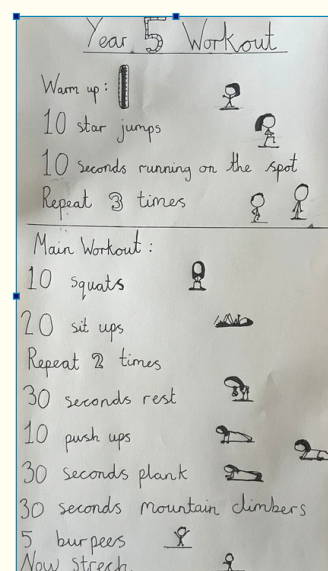 Year 5 Workout
Warm up:
10 star jumps
10 seconds running on the spot
Repeat 3 times
Main Workout:
10 squats
20 sit ups
Repeat 2 times
30 seconds rest
10 push ups
30 seconds plank
30 seconds mountain climbers
5 burpees
Now strech